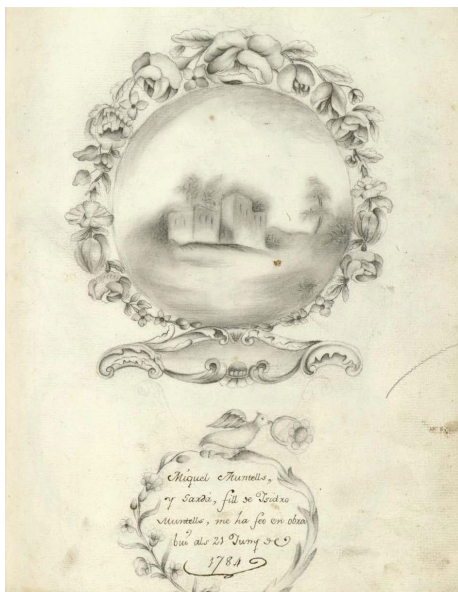 Miquel Muntells,
y Sardá, fill de Isidro
Muntells, me ha fee en obra
bui als 21 Juny de
1784